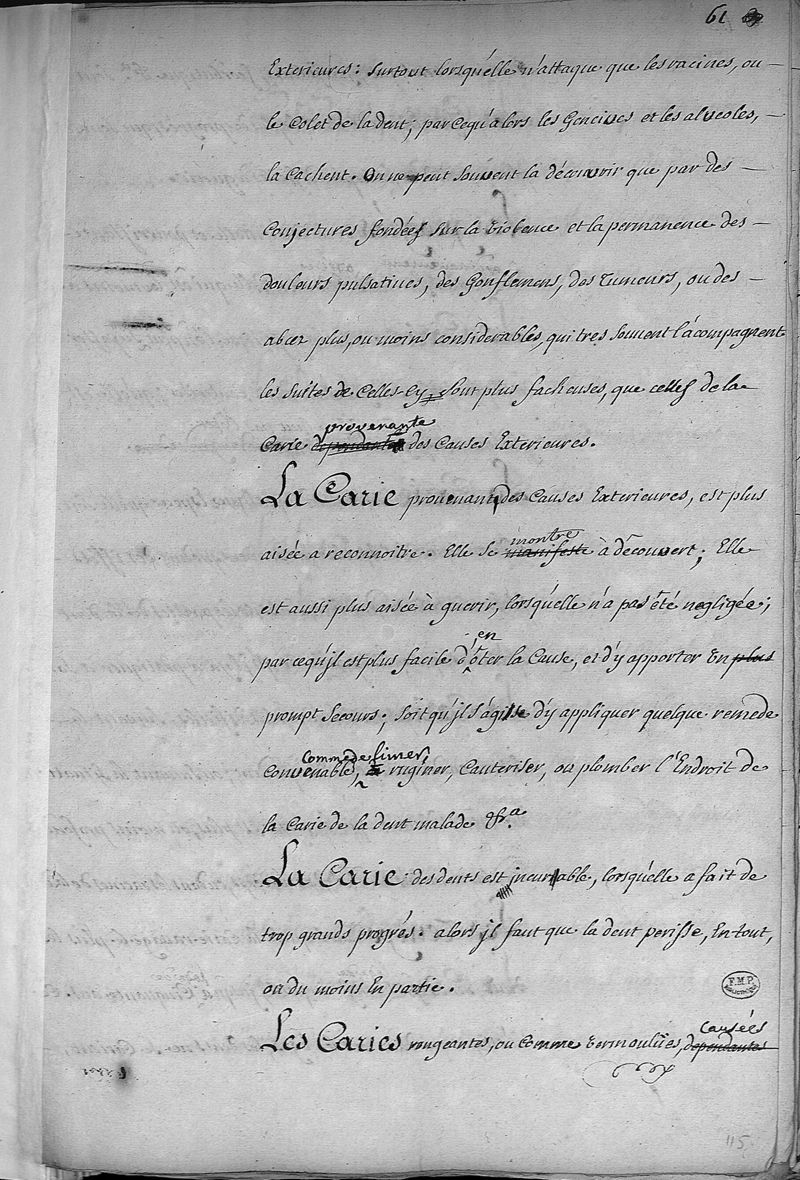 61
Exterieures: surtout lorsqu'elle n'attaque que les racines, ou —
le Colet de la dent; parcequ'alors les Gencives et les alveoles, —
la Cachent. On ne peut souvent la découvrir que par des —
Conjectures fondées sur la violence et la permanence des —
douleurs pulsatives, des Gonflemens, des Tumeurs, ou des —
abcez plus, ou moins considerables, qui tres souvent l'acompagnent
les suites de Celles-Cy, sont plus facheuses, que celles de la
provenante
Carie dependante des Causes Exterieures.
La Carie provenant des Causes Exterieures, est plus
montre
aisée a reconnoitre. Elle se manifeste à découvert; Elle
est aussi plus aisée à guerir, lorsqu'elle n'a pas été negligée;
en
parcequ'jl est plus facile d'ôter la Cause, et d'y apporter un plus
prompt secours; soit qu'jl s'agisse d'y appliquer quelque remede
comme de limer,
Convenable, ruginer, Cauteriser, ou plomber l'Endroit de
la Carie de la dent malade &.a
La Carie des dents est incurable, lorsqu'elle a fait de
trop grands progrés. alors jl faut que la dent perisse, En tout,
ou du moins En partie.
F.M.P.
causées
Les Caries rongeantes, ou comme vermoulües, dependantes
115